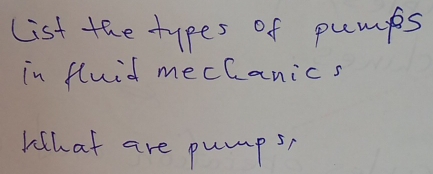 List the types of pumps
in fluid mechanics
What are pumps,